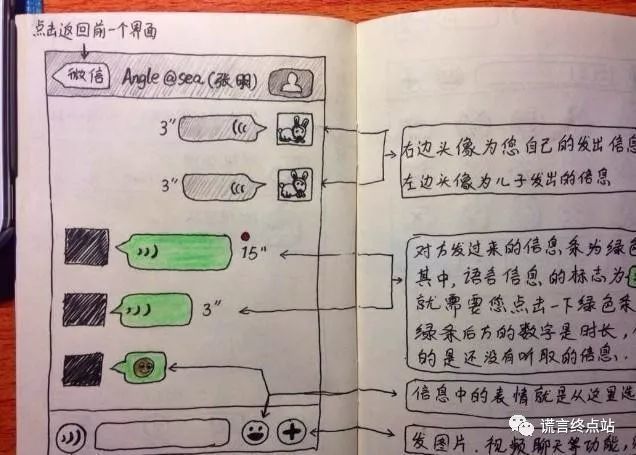 点击返回前一个界面
微信 Angle@sea (张明)
3"
3"
15"
3"
右边头像为您自己的发出信息
左边头像为儿子发出的信息
对方发过来的信息条为绿色
其中,语言信息的标志为
就需要您点击一下绿色条
绿条后方的数字是时长,
的是还没有听取的信息.
信息中的表情就是从这里选
发图片、视频聊天等功能,
谎言终点站